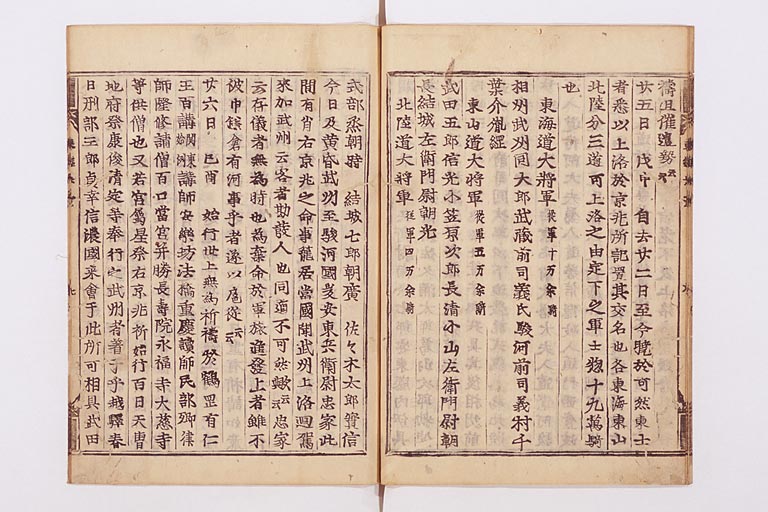 禱且催進發云云
廿五日 戊申 自去廿二日至今曉於可然東士
者悉以上洛於京兆所記置其交名也各東海東山
北陸分三道可上洛之由定下之軍士惣十九萬騎
也
東海道大將軍 從軍十万余騎
相州武州同太郎武藏前司義氏駿河前司義村千
葉介胤綱
東山道大將軍 從軍五万余騎
武田五郎信光小笠原次郎長清小山左衛門尉朝
長結城左衛門尉朝光
北陸道大將軍 從軍四万余騎
式部丞朝時 結城七郎朝廣 佐々木太郎實信
今日及黄昏武州至駿河國爰安東兵衛尉忠家此
間有背右京兆之命事籠居當國聞武州上洛廻駕
來加武州云客者勘發人也同道不可然歟云云忠家
云存儀者無為時也為棄命於軍旅進發上者雖不
被申鎌倉有何事乎者遂以扈從云云
廿六日 己酉 始行世上無為祈禱於鶴岡有仁
王百講 講師安樂坊法橋重慶讀師民部卿律
師隆修請僧百口當宮并勝長壽院永福寺大慈寺
等供僧也又若宮屬星祭右京兆祈始行百日天曹
地府祭康俊清定等奉行之武州者着于手越驛春
日刑部三郎貞幸信濃國来會于此所可相具武田